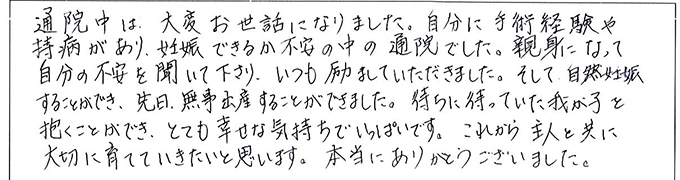 通院中は、大変お世話になりました。自分に手術経験や
持病があり、妊娠できるか不安の中の通院でした。親身になって
自分の不安を聞いて下さり、いつも励ましていただきました。そして、自然妊娠
することができ、先日、無事出産することができました。待ちに待っていた我が子を
抱くことができ、とても幸せな気持ちでいっぱいです。これから主人と共に
大切に育てていきたいと思います。本当にありがとうございました。